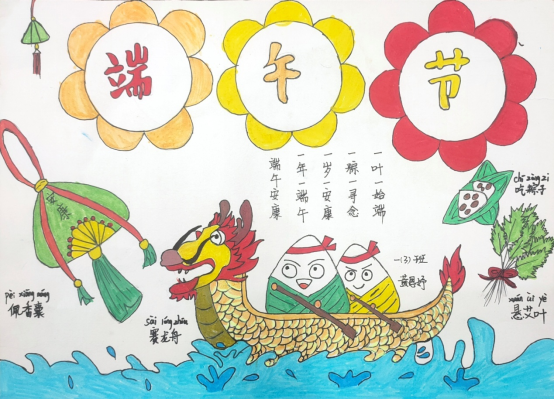 端午节
一叶一始端
一粽一寻念
一岁一安康
一年一端午
端午安康
安康
pèi xiāng náng
佩香囊
sài lóng zhōu
赛龙舟
一(3)班
chī zòng zi
吃粽子
xuán ài yè
悬艾叶